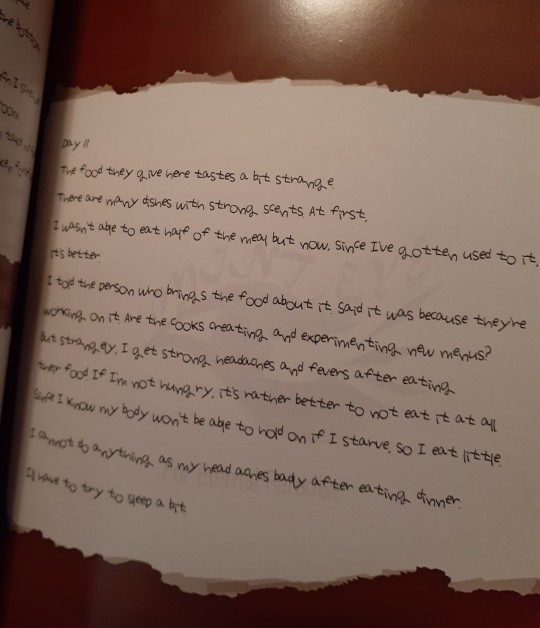 the button
Day 11
The food they give here tastes a bit strange
There are many dishes with strong scents. At first,
I wasn't able to eat half of the meal but now, since I've gotten used to it,
it's better.
I told the person who brings the food about it. Said it was because they're
working on it. Are the cooks creating and experimenting new menus?
But strangely, I get strong headaches and fevers after eating
their food If I'm not hungry, it's rather better to not eat it at all
Since I know my body won't be able to hold on if I starve, so I eat little.
I cannot do anything as my head aches badly after eating dinner.
I'll have to try to sleep a bit